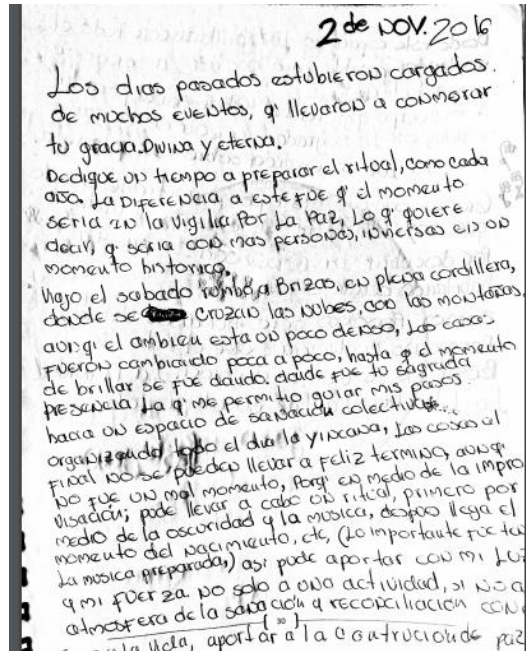 2 de NOV. 2016
Los dias pasados estubieron cargados.
de muchos eventos, q' llevaron a conmorar
tu gracia. Divina y eterna.
Dedique un tiempo a preparar el ritual, como cada
año. La Diferencia a este fue q' el momento
seria en la Vigilia Por La Paz, Lo q' quiere
decir, q' seria con mas personas, inmersas en un
momento historico.
Viajo el sabado rumbo a Brizas, en plena cordillera,
donde se cruzan las nubes, con las montañas.
aunq' el ambien esta un poco denso, Las cosas
fueron cambiando poco a poco, hasta q' el momento
de brillar se fue dando. donde fue tu sagrada
presencia La q' me permitio guiar mis pasos.
hacia un espacio de sanación colectiva...
organizando todo el dia la yincana, Las cosas al
final no se pueden llevar a feliz termino, aunq'
no fue un mal momento, Porq' en medio de la impro
visación; pude llevar a cabo un ritual, primero por
medio de la oscuridad y la musica, despues llega el
momento del nacimiento, etc, (Lo importante fue
La musica preparada,) asi pude aportar con mi Luz
y mi fuerza no solo a una actividad, si no a
atmosfera de la sanación y reconciliación con
30
aportar a la contrucion de paz